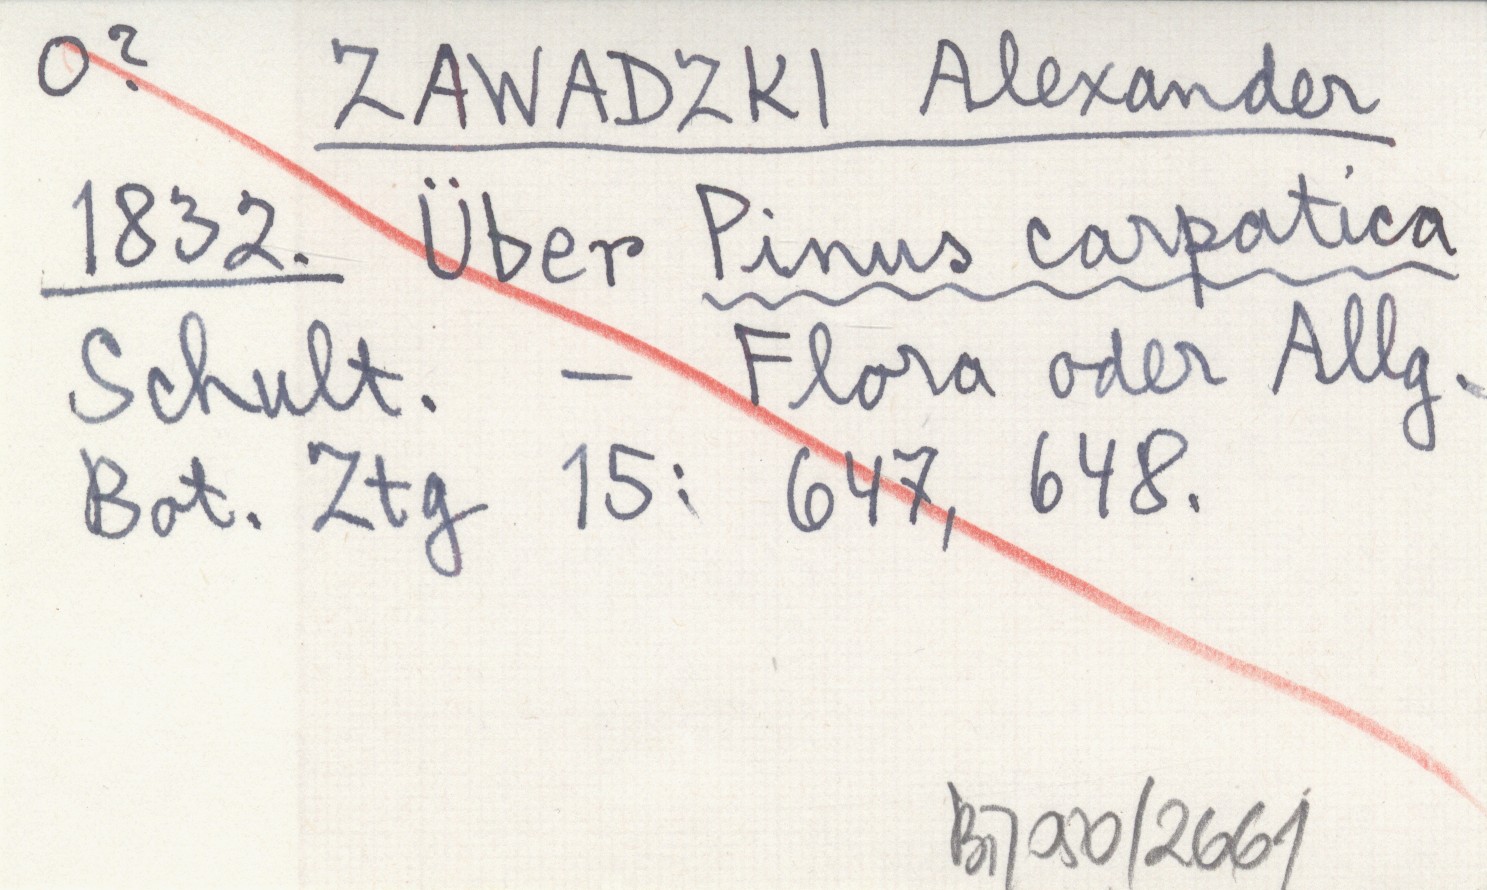 O? ZAWADZKI Alexander
1832. Über Pinus carpatica
Schult. — Flora oder Allg.
Bot. Ztg 15: 647, 648.
/2661